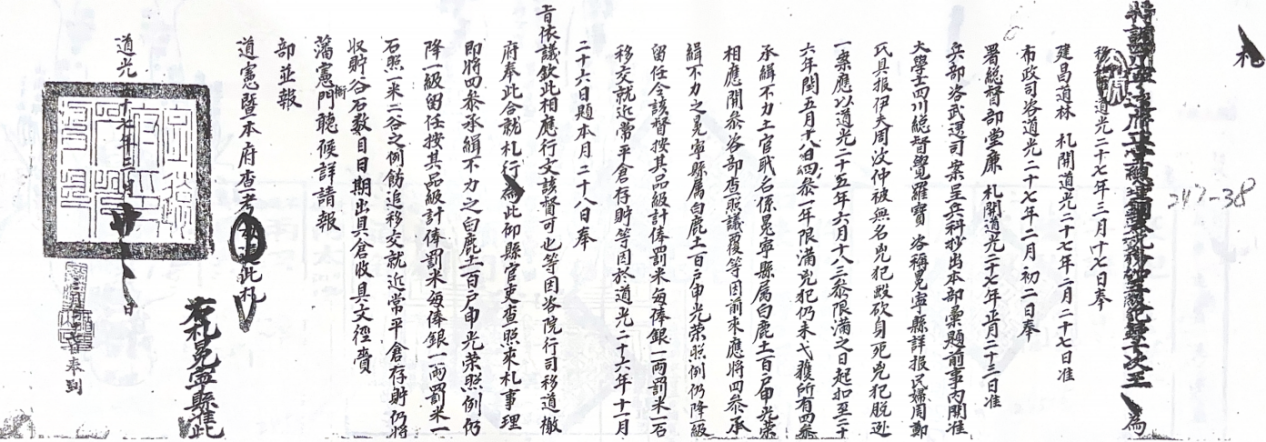 札
為
移知事道光二十七年三月十七日奉
建昌道林 札開道光二十七年二月二十七日准
布政司咨道光二十七年二月初二日奉
署總督部堂廉 札開道光二十七年正月二十二日准
兵部咨武選司案呈兵科抄出本部彙題前事內開准
大學士四川總督覺羅寶 咨稱冕寧縣詳報民婦周鄭
氏具報伊夫周汶仲被無名兇犯毆砍身死兇犯脫逃
一案應以道光二十五年六月十八三叅限滿之日起扣至二十
六年閏五月十八日四叅一年限滿兇犯仍未弋獲所有四叅
承緝不力土官職名係冕寧縣屬白鹿土百戶申光榮
相應開叅咨部查照議覆等因前來應將四叅承
緝不力之冕寧縣屬白鹿土百戶申光榮照例仍降級
留任令該督按其品級計俸罰米每俸銀一兩罰米一石
移交就近常平倉存貯等因於道光二十六年十一月
二十六日題本月二十八日奉
旨依議欽此相應行文該督可也等因咨院行司移道檄
府奉此合就札行為此仰縣官吏查照來札事理
即將四叅承緝不力之白鹿土百戶申光榮照例仍
降一級留任按其品級計俸罰米每俸銀一兩罰米一
石照一米二谷之例飭追移交就近常平倉存貯仍將
收貯谷石數目日期出具倉收具文徑賫
藩憲衙門聽候詳請報
部並報
道憲暨本府查考 此札
右札冕寧縣准此
道光二十七年三月 日
奉到
247-38